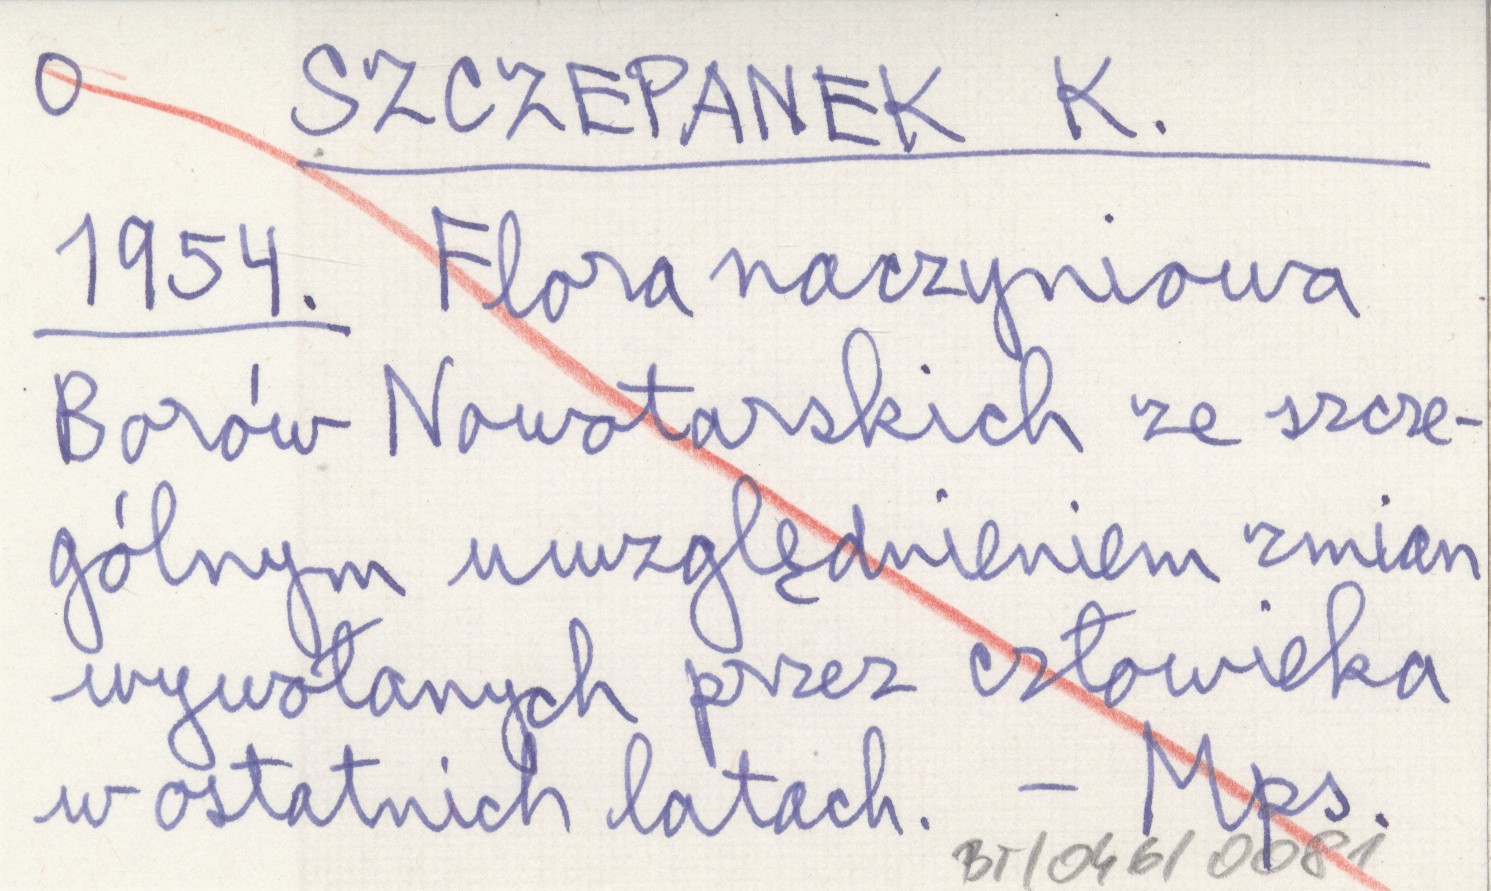 O SZCZEPANEK K.
1954. Flora naczyniowa
Borów Nowotarskich ze szcze-
gólnym uwzględnieniem zmian
wywołanych przez człowieka
w ostatnich latach. – Mps.
BT/046/0081